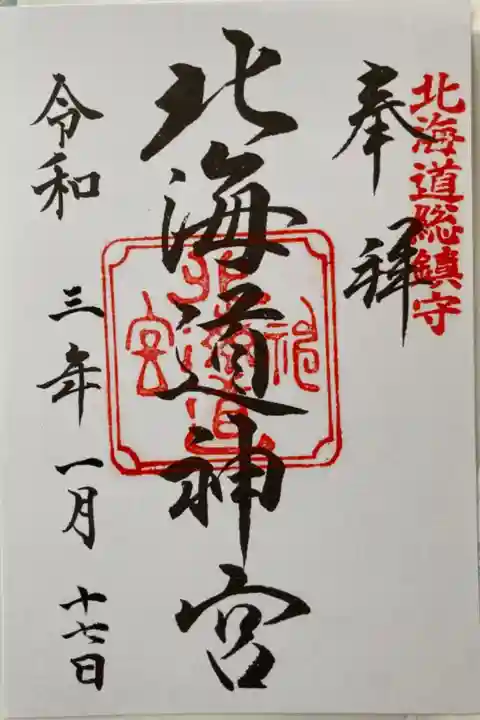 北海道総鎮守
奉拝
北海道神宮
北海道神宮
令和三年一月十七日